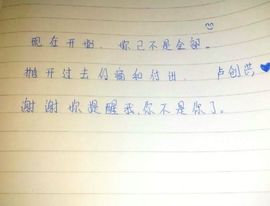 现在开始，你已不是全部。
抛开过去伤痛和付出，卢创
谢谢你提醒我，你不是你了。